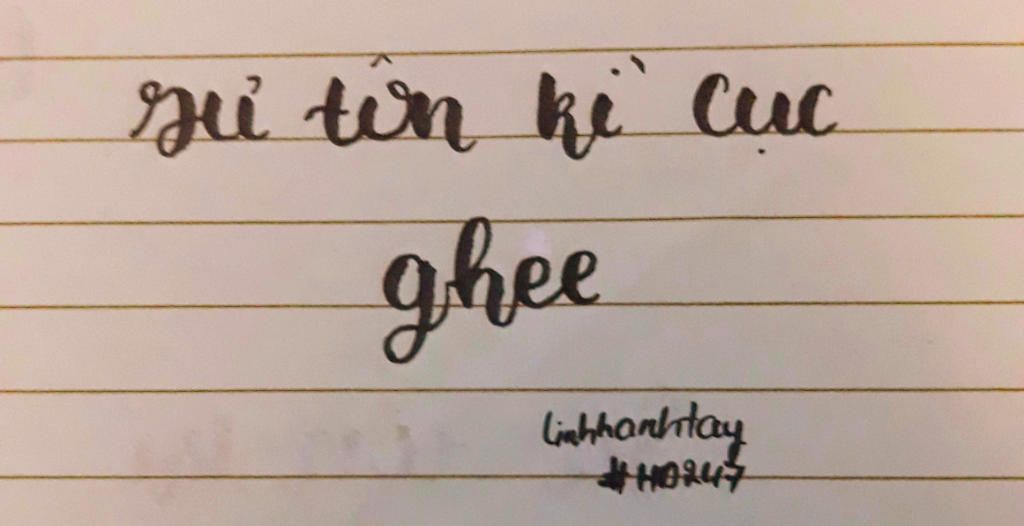 rủ tôn kì cục
ghee
linhhanhtay
#HD247